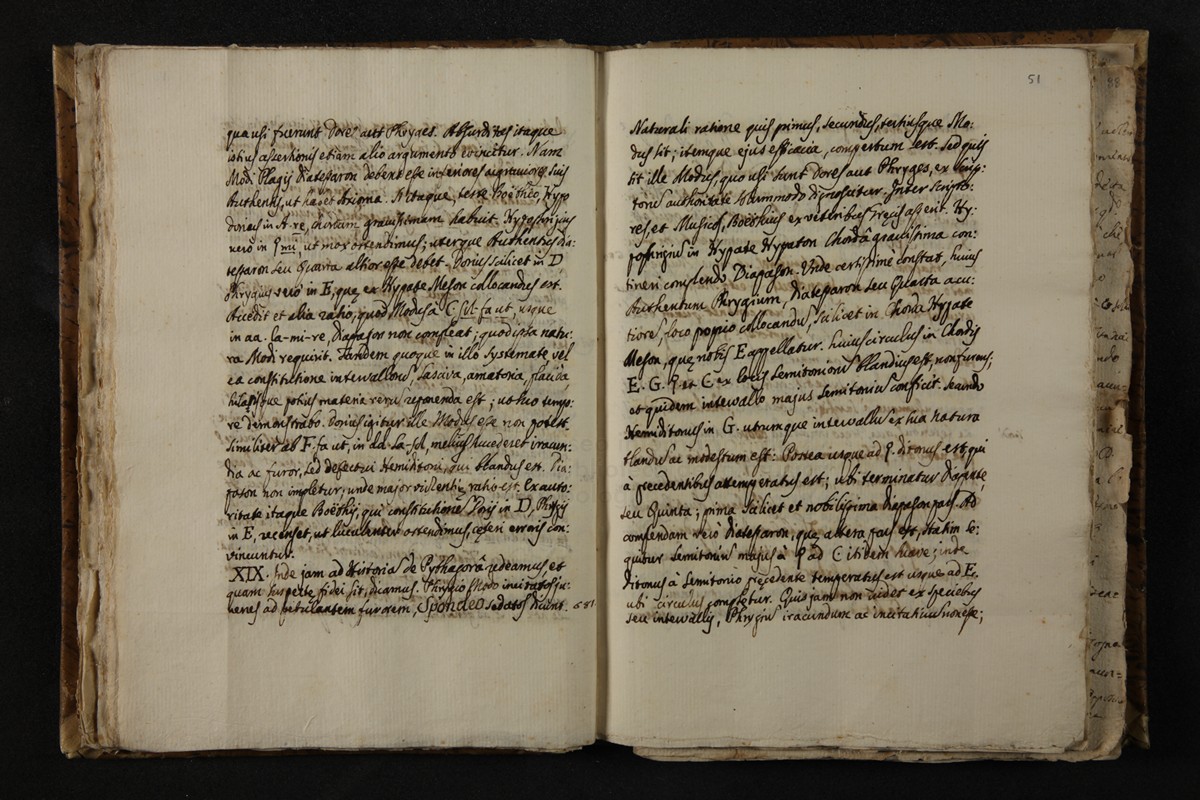 qua usi fuerunt Dores aut Phryges. Absurditas itaque
istius assertionis etiam alio argumento convincitur. Nam
Modi Plagij Diatessaron debent esse inferiores ac graviores suis
Authentis, ut habet Axioma. Atitaque, teste Boëthio, Hypo
dorius in A-re, chordam gravissimam habuit. Hypophrigius
vero in mi, ut mox ostendimus; uterque Authenticus Dia:
tessaron seu Quarta altior esse debet. Dorius scilicet in D
Phrygius verò in E, quę ex Hypate Meson collocandus est.
Accedit et alia ratio, quod Modus a C sol-fa ut, usque
in aa. la-mi-re, Diapason non compleat; quod ipsa natu:
ra Modi requirit. Tandem quoque in illo systemate, vel
ea constitutione intervallorū, lasciva, amatoria,
potius materia rerū reponenda est; ut suo tempo:
re demonstrabo. Dorius igitur ille Modus esse non potest.
Similiter ab F. fa ut, in dd. la-sol, melius succederet iracun:
dia ac furor, sed defectui Hemiditoni, qui blandus est. Dia:
pason non impletur; unde major violentię ratio est. Ex auto:
ritate itaque Boëthij, qui constitutionē Dorij in D, Phrygij
in E, recenset, ut luculenter ostendimus, cęteri erroris con:
vincuntur.
XIX. Inde jam ad Historiā de Pythagorâ redeamus et
quam suspectę fidei sit, dicamus. Phrygio Modo incitatos ju:
venes ad petulantem furorem, Spondeo sedatos dicunt. sed
51
Naturali ratione quis primus, secundus, tertiusque Mo:
dus sit; itemque ejus efficacia, compertum est. Sed quis
sit ille Modus, quo usi sunt Dores aut Phryges, ex Scrip:
torū authoritate solummodo dignoscitur. Inter Scripto:
res, et Musicos, Boëthius ex veteribus Gręcis asserit. Hy:
pophrigiū in Hypate Hypaton Chordâ gravissima con:
tineri complendo Diapason. Unde certissimè constat, huius
Authentum Phrygium, Diatessaron seu Quarta acu:
tiore, loco proprio collocandū, scilicet in Chorda Hypate
Meson, quę nobis E appellatur. huius circulus in Chordis
E. G. et C ex locis semitoniorū blandius est, non furens;
et quidem intervallo majus semitoniū conficit. secundo
Hemiditonus in G. utrumque intervallū ex sua natura
blandū ac modestum est: Postea usque ad ditonus est, qui
à pręcedentibus attemperatus est; ubi terminatur Diapente,
seu Quinta; prima scilicet et nobilissima diapason pars. Ad
complendam verò Diatessaron, quę altera pars est, statim se:
quitur semitoniū majus à ad C itidem suave; inde
ditonus à semitonio pręcedente temperatus est usque ad E.
ubi circulus completur. Quis jam non videt ex speciebus
seu intervallis, Phrygiū iracundum ac incitativū non esse;